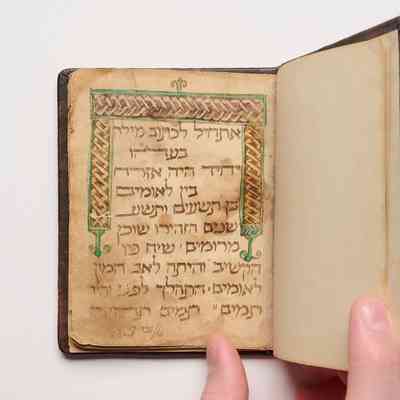 אתחיל לכתוב מילת
יחיד היה אזרח
בין לאומים
בן תשעים ותשע
שנים הזהירו שוכן
מרומים שיח פו
הקשיב והיתה לאב המון
לאומים התהלך לפני והיו
תמים תמים